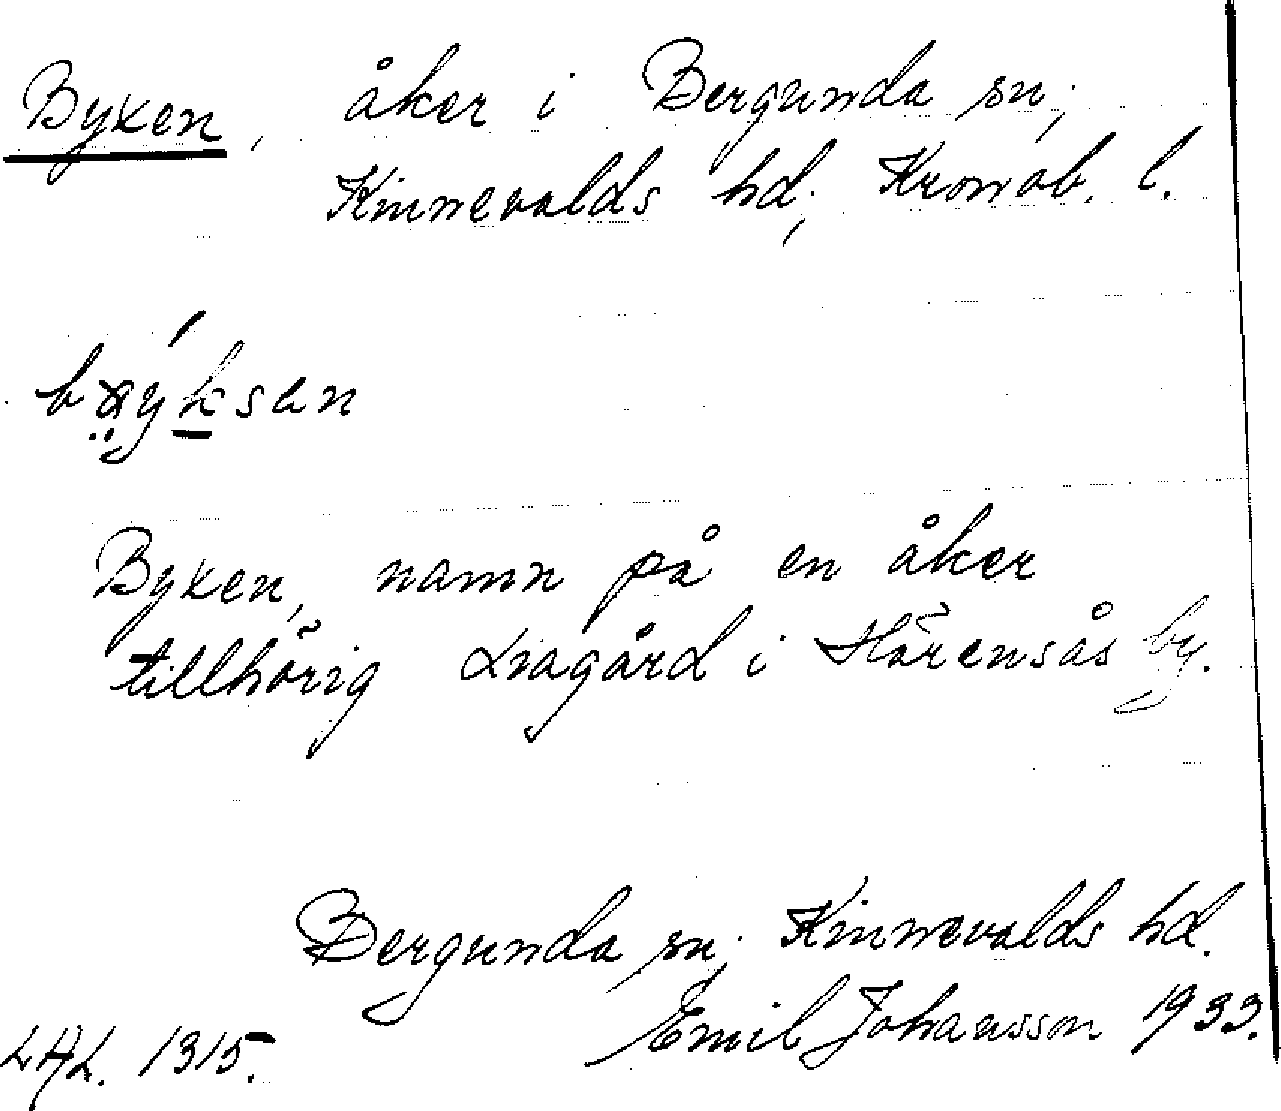 Byxen, åker i Bergunda sn;
Kinnevalds hd; Kronob. l.
Byxen, namn på en åker
tillhörig Liagård i Hörensås by.
Bergunda sn; Kinnevalds hd.
Emil Johansson 1933.
LAL. 1315.